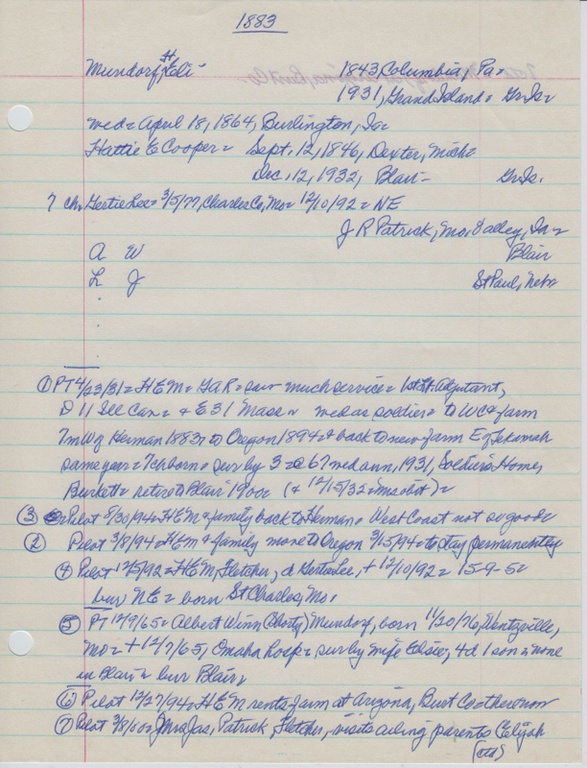 1883
Mundorf, H Eli 1843, Columbia, Pa=
1931, Grand Island = Gr.Is=
wed = April 18, 1864, Burlington, Ia=
Hattie E Cooper = Sept. 12, 1846, Dexter, Mich=
Dec. 12, 1932, Blair = Gr.Is.
7 ch. Gertie Lee = 3/5/77, Charles Co, Mo = 12/10/92 = NE
J R Patrick, Mo. Valley, Ia =
A W Blair
L J St Paul, Nebr
① PT 4/23/31 = H E M = GAR = saw much service = 1st Lt. Adjutant,
D 11 Ill Cav. = & E 31 Mass = wed as soldier = to WC & farm
7m W of Herman 1883 = to Oregon 1894 & back to new farm E of Tekamah
same year = 7 ch born = sur by 3 = 67 wed ann, 1931, Soldiers Home,
Burkett = retire to Blair 1900 (& 12/15/32 = ms obit) =
③ Pilot 8/30/94 = H E M & family back to Herman = West Coast not so good =
② Pilot 3/8/94 = H E M & family move to Oregon 3/15/94 = to stay permanently
4 Pilot 12/15/92 = H E M, Fletcher, d Gertie Lee, + 12/10/92 = 15-9-5 =
bur NE = born St Charles, Mo.
⑤ PT 12/9/65 = Albert Winn Mundorf, born 11/20/76, Wentzville,
Mo = + 12/7/65, Omaha hosp = sur by wife Elsie, 4 d 1 son = none
in Blair = bur Blair =
⑥ Pilot 12/27/94 = H E M rents farm at Arizona, Burt Co
⑦ Pilot 3/8/00 = Mrs Jas, Patrick, Fletcher, visits ailing parents Elijah
(ctd)